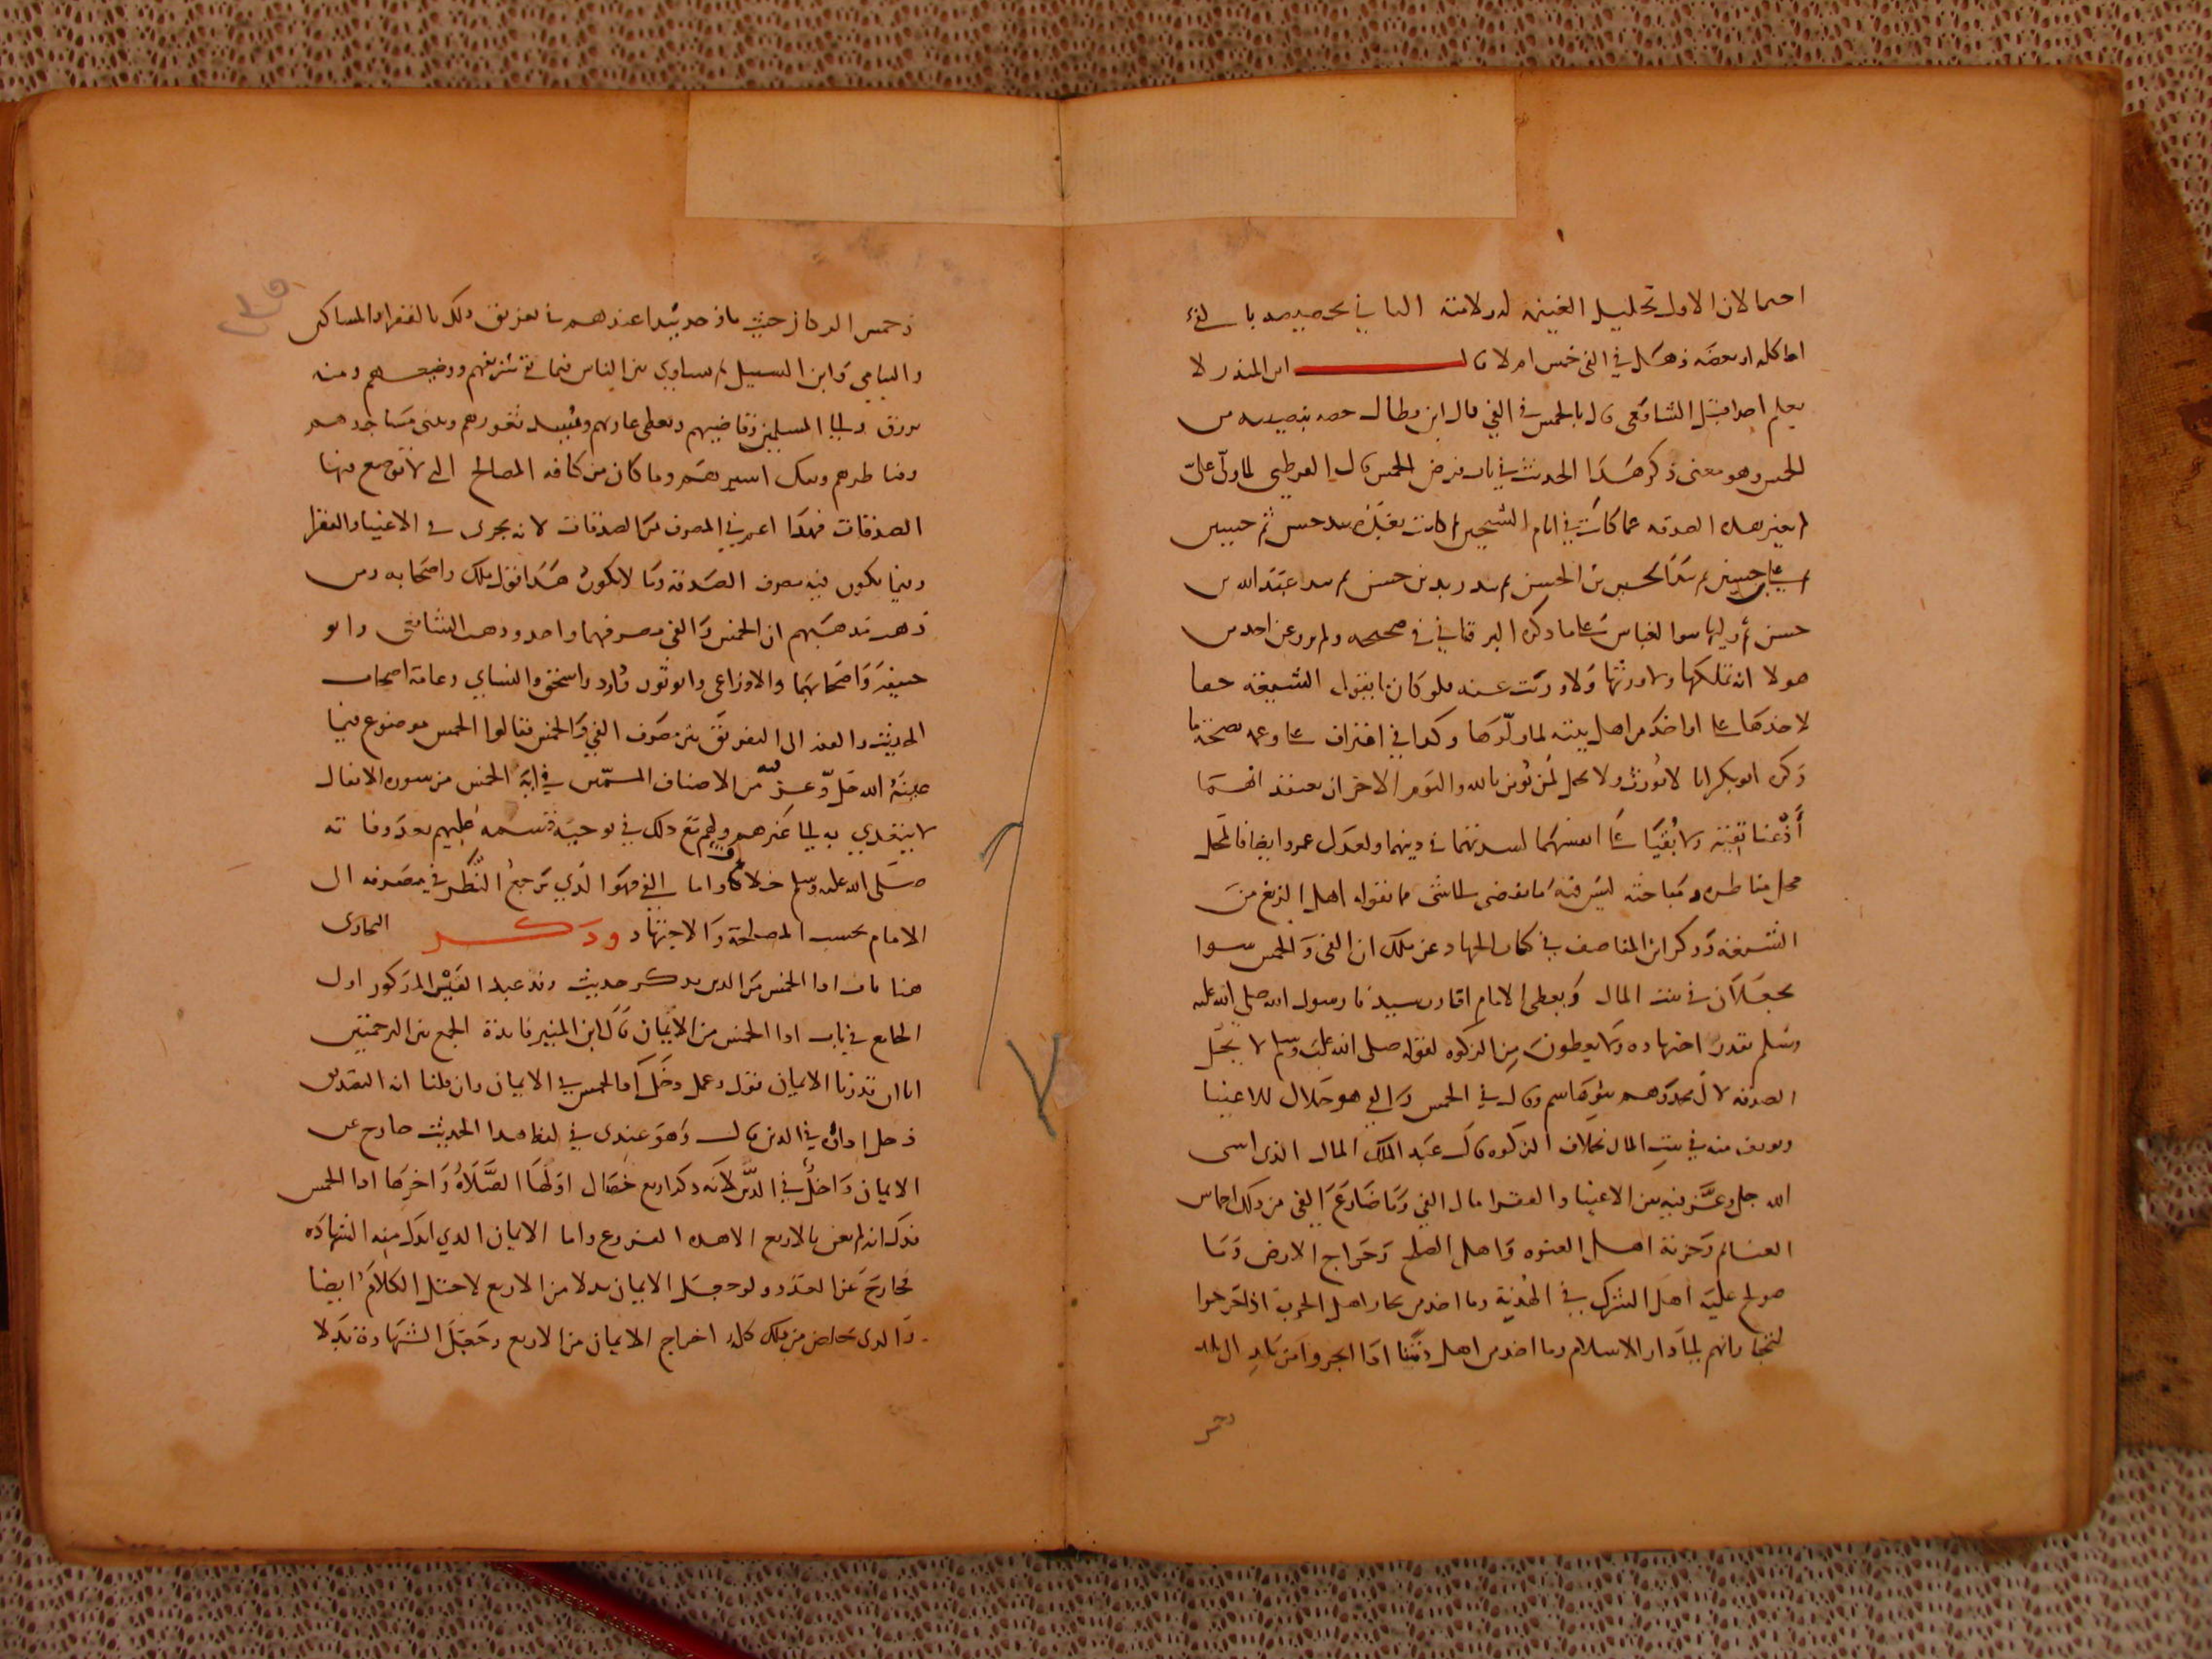 احتمالان الاول تحليل الغنيمة له ولامته الثاني تخصيصه بالفيء
اما كله او بعضه وهل في الفي خمس ام لا قال ابن المنذر لا
نعلم احدا قبل الشافعي قال بالخمس في الفي قال ابن بطال
الخمس وهو معنى ذكر هذا الحديث في باب فرض الخمس قال القرطبي لما ولي علي
لم يغير هذه الصدقة عما كانت في ايام الشيخين ثم كانت بعده بيد حسن ثم حسين
ثم علي بن حسين ثم بيد الحسن بن الحسن ثم بيد زيد بن حسن ثم بيد عبد الله بن
حسن ثم وليها بنوا العباس على ما ذكره البرقاني في صحيحه ولم يرو عن احد من
هولا انه تملكها ولا ورثها ولا ورثت عنه فلو كان ما يقوله الشيعة حقا
لاخذها علي او احد من اهل بيته لما ولوها وكذا في اعتراف علي وعمه بصحة ما
ذكره ابو بكر انا لا نورث ولا يحل لمن يومن بالله واليوم الاخر ان يعتقد انهما
اذعنا تقية ولا بقيا على انفسهما لشدتهما في دينهما ولعدل عمر وايضا فالمحل
محل مناظرة ومباحثة ليس فيه ما يفضي لشي مما تقوله اهل الزيغ من
الشيعة وذكر ابن المناصف في كتاب الجهاد عن ملك ان الفي والخمس سوا
يجعلان في بيت المال ويعطي الامام اقارب سيدنا رسول الله صلى الله عليه
وسلم بقدر اجتهاده ولا يعطون من الزكوة لقوله صلى الله عليه وسلم لا تحل
الصدقة لال محمد وهم بنو هاشم وقال في الخمس والفي هو حلال للاغنيا
ويوقف منه في بيت المال بخلاف الزكوة قال عبد الملك المال الذي اسى
الله جل وعز فيه بين الاغنيا والفقرا مال الفي وما ضارع الفي من ذلك اخماس
الغنايم وجزية اهل العنوة واهل الصلح وخراج الارض وما
صولح عليه اهل الشرك في الهدنة وما اخذ من تجار اهل الحرب اذا خرجوا
لتجاراتهم الى دار الاسلام وما اخذ من اهل ذمتنا اذا اتجروا من بلد الى بلد
وخمس
١٣٥
وخمس الركاز حيث ما وجد يبدا عندهم في تفريق ذلك بالفقرا والمساكين
واليتامى وابن السبيل ثم يساوي بين الناس فيما بقي شريفهم ووضيعهم ومنه
يرزق والي المسلمين وقاضيهم ويعطى غازيهم وتسد ثغورهم وتبنى مساجدهم
وقناطرهم ويفك اسيرهم وما كان من كافة المصالح التي لا توضع فيها
الصدقات فهذا اعم في المصرف من الصدقات لانه يجري في الاغنيا والفقرا
وفيما يكون فيه مصرف الصدقة وما لا يكون هذا قول ملك واصحابه ومن
ذهب مذهبهم ان الخمس والفي مصرفهما واحد وذهب الشافعي وابو
حنيفة واصحابهما والاوزاعي وابو ثور وداود واسحق والنساي وعامة اصحاب
الحديث والفقه الى التفريق بين مصرف الفي والخمس فقالوا الخمس موضوع فيما
عينه الله جل وعز فيه من الاصناف المسمين في اية الخمس من سورة الانفال
لا يتعدى به الى غيرهم ولهم مع ذلك في توجيه قسمه عليهم بعد وفاته
صلى الله عليه وسلم خلاف واما الفي فهو الذي يرجع النظر في مصرفه الى
الامام بحسب المصلحة والاجتهاد وذكر البخاري
هنا باب ادا الخمس من الدين بذكر حديث وفد عبد القيس المذكور اول
الجامع في باب ادا الخمس من الايمان قال ابن المنير فايدة الجمع بين الترجمتين
انا ان قدرنا الايمان قول وعمل دخل ادا الخمس في الايمان وان قلنا انه التصديق
دخل اداه في الدين قال وهو عندي في لفظ هذا الحديث خارج عن
الايمان داخل في الدين لانه ذكر اربع خصال اولها الصلاة واخرها ادا الخمس
فدل انه لم يعن بالاربع الا هذه الفروع واما الايمان الذي ابدل منه الشهادة
فخارج عن العدد ولو جعل الايمان بدلا من الاربع لاختل الكلام ايضا
والذي خلص من ذلك كله اخراج الايمان من الاربع وجعل الشهادة بدلا